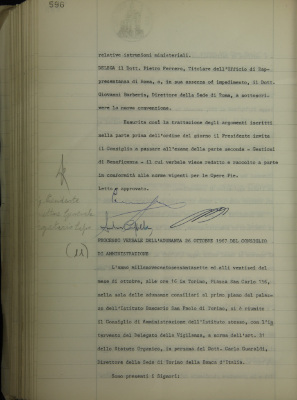 596
relative istruzioni ministeriali.
DELEGA il Dott. Pietro Ferrero, Titolare dell'Ufficio di Rap-
presentanza di Roma, e, in sua assenza od impedimento, il Dott.
Giovanni Barberis, Direttore della Sede di Roma, a sottoscri-
vere la nuova convenzione.
Esaurita così la trattazione degli argomenti iscritti
nella parte prima dell'ordine del giorno il Presidente invita
il Consiglio a passare all'esame della parte seconda - Sezioni
di Beneficenza - il cui verbale viene redatto e raccolto a parte
in conformità alle norme vigenti per le Opere Pie.
Letto e approvato.
(22)
PROCESSO VERBALE DELL'ADUNANZA 26 OTTOBRE 1967 DEL CONSIGLIO
DI AMMINISTRAZIONE
L'anno millenovecentosessantasette ed alli ventisei del
mese di ottobre, alle ore 16 in Torino, Piazza San Carlo 156,
nella sala delle adunanze consiliari al primo piano del palaz-
zo dell'Istituto Bancario San Paolo di Torino, si è riunito
il Consiglio di Amministrazione dell'Istituto stesso, con l'in-
tervento del Delegato della Vigilanza, a norma dell'art.
dello Statuto Organico, in persona del Dott. Carlo
Direttore della Sede di Torino della Banca d'Italia.
Sono presenti i Signori: